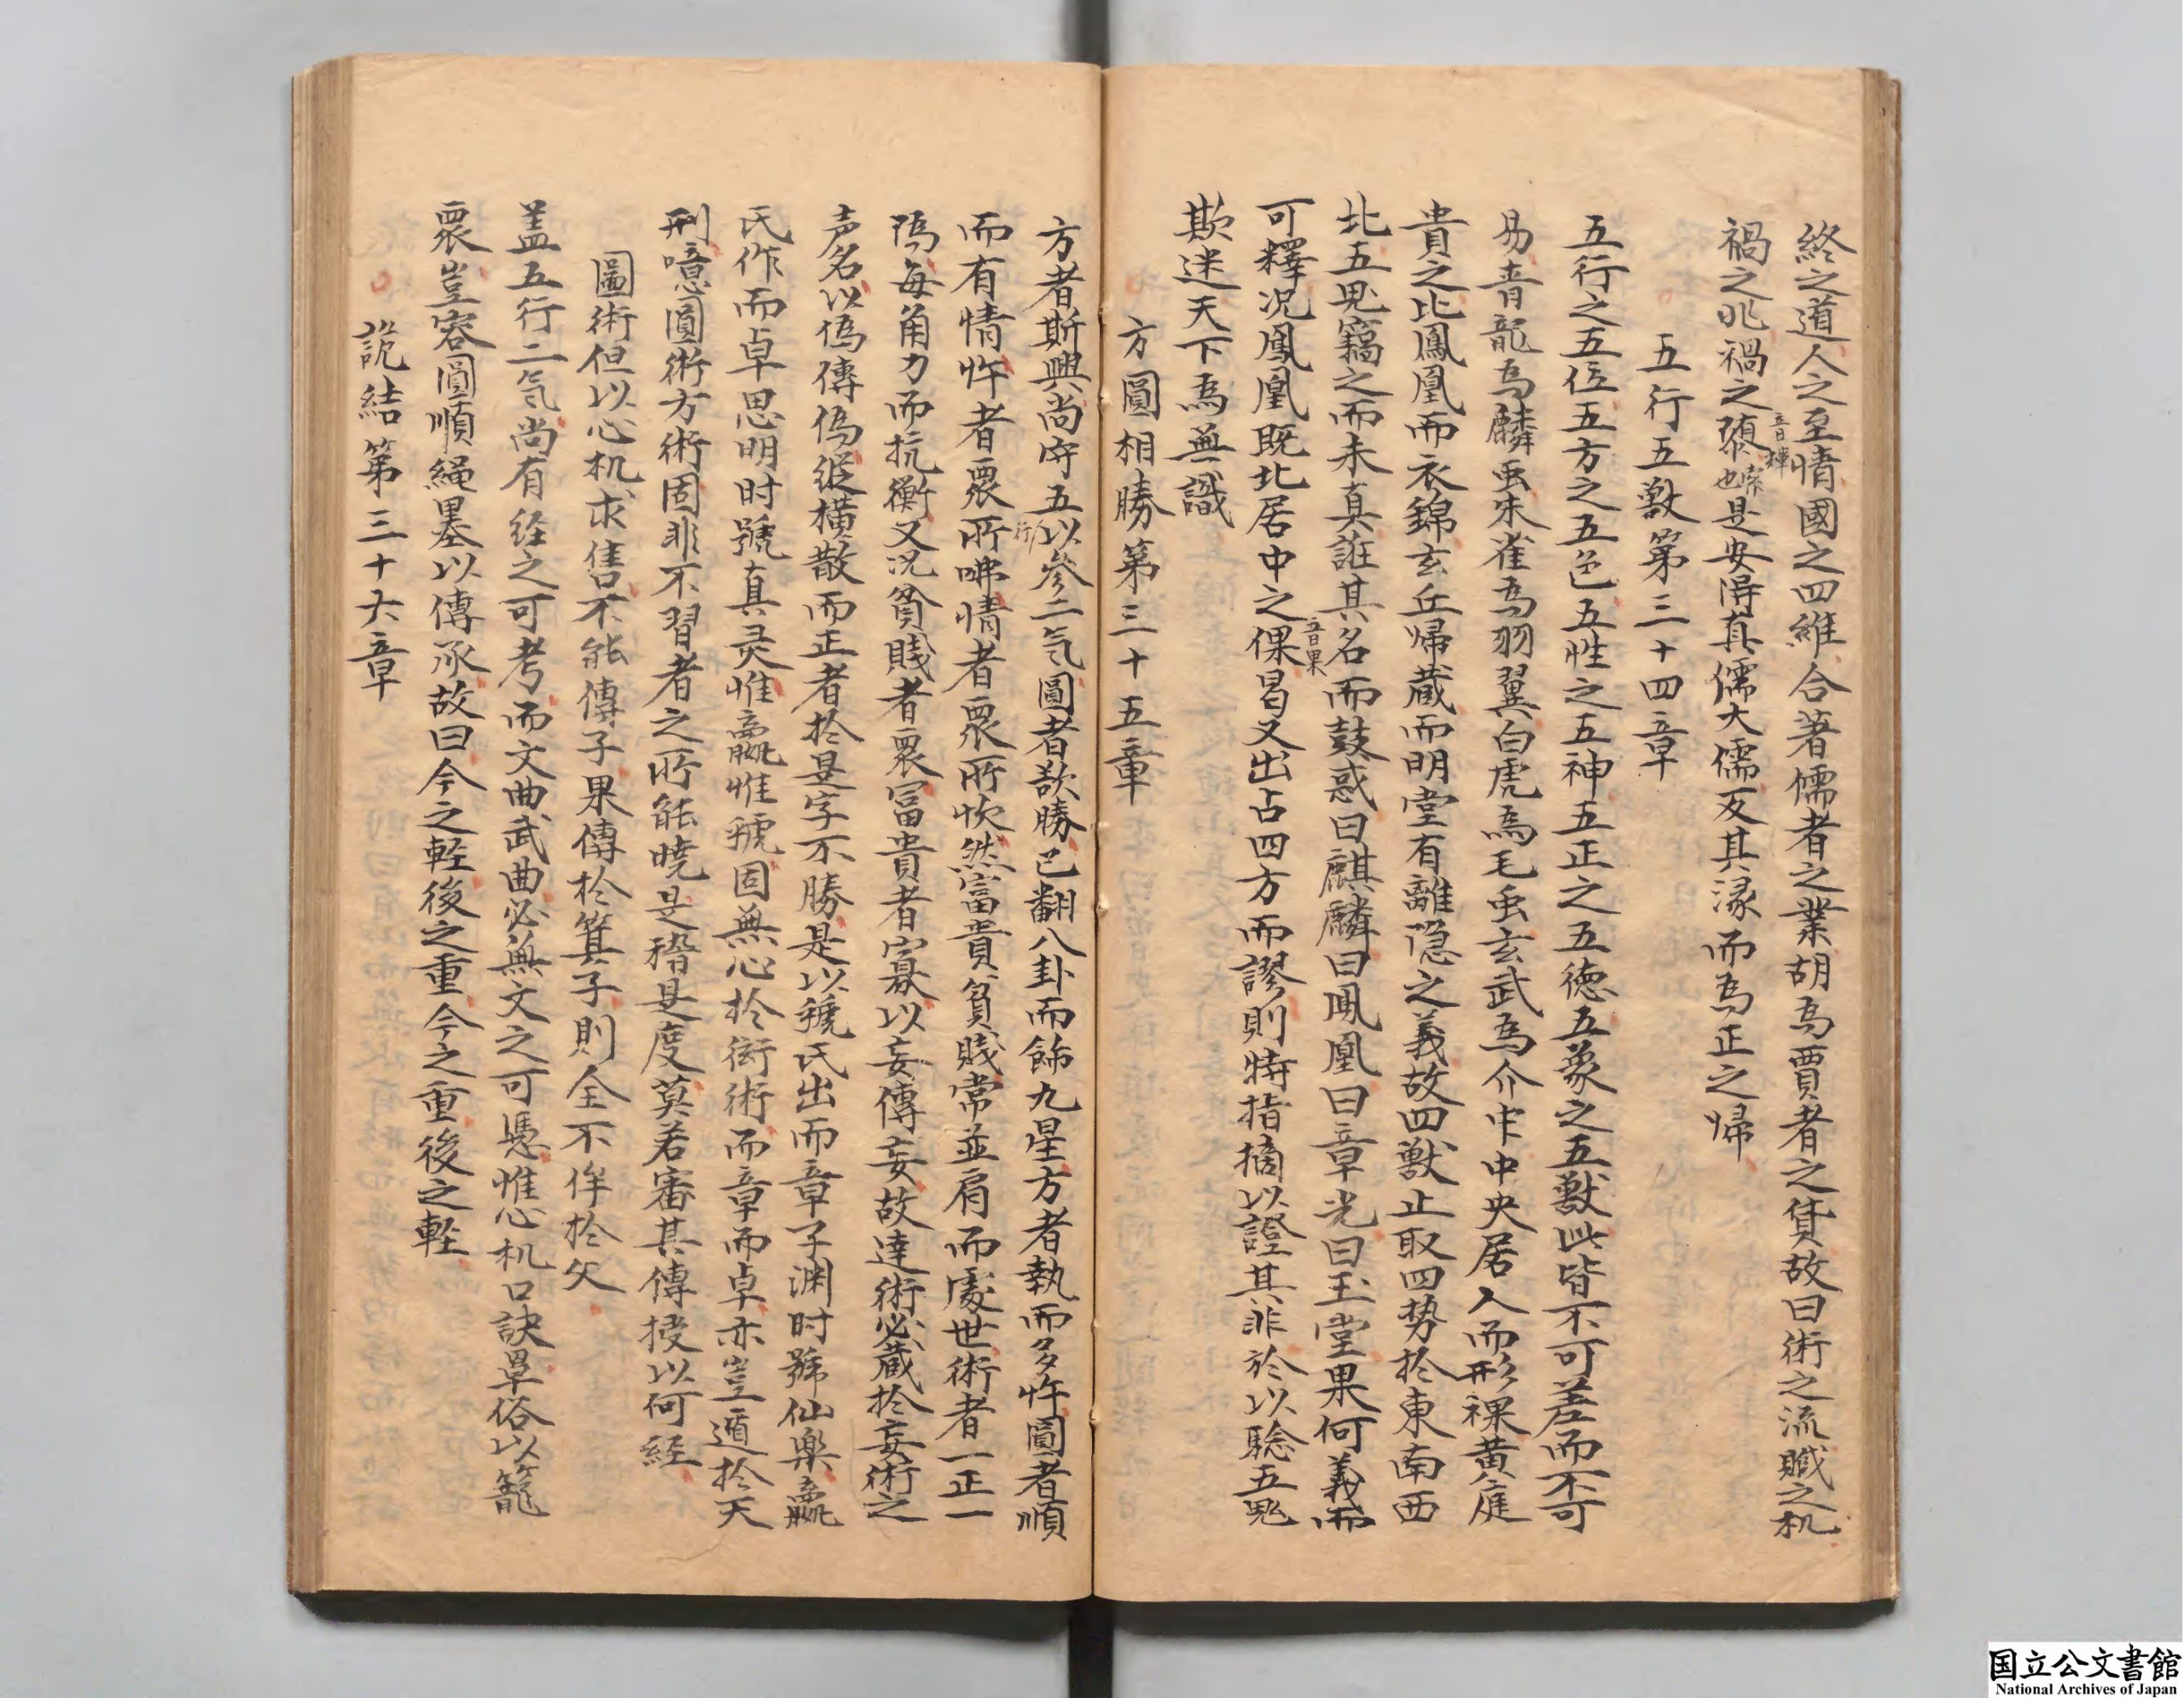 終之道人之至情國之四維合著儒者之業胡為賈者之貨故曰術之流賊之机
禍之兆禍之也是安得真儒大儒反其源而為正之歸
音
五行五獣第三十四章
五行之五位五方之五色五性之五神五正之五徳五象之五獣此皆不可差而不可
易青龍為麟虫朱雀為羽翼白虎為毛虫玄武為介虫中央居人而形裸黄庭
貴之比鳳凰而衣錦玄丘帰蔵而明堂有離隐之義故四獣止取四势扵東南西
北五鬼竊之而未真誑其名而鼓惑曰麒麟曰鳳凰曰章光曰玉堂果何義而
可釋况鳳凰既北居中之倮曷又出占四方而謬則特指摘以證其非於以騐五鬼
音果
欺迷天下為無識
方圓相勝第三十五章
方者斯興尚守五以参二气圓者欲勝已翻八卦而飾九星方者執而多忤圓者順
行
而有情忤者衆所咈情者衆所忺然富貴貧賎常並肩而處世術者一正一
偽每角力而抗衡又况貧賎者衆冨貴者寡以妄傳妄故達術必蔵扵妄術之
声名以偽傳偽縦横散而正者扵是字不勝是以號氏出而章子渊时號仙樂嬴
氏作而卓思明时號真灵惟嬴惟號固無心扵衒術而章而卓亦豈遁扵天
刑噫圓術方術固非不習者之所能曉是稽是度莫若審其傳授以何經
圖術但以心机求售不能傳子果傳扵箕子則全不侔扵父
盖五行二气尚有經之可考而文曲武曲必無文之可憑惟心机口訣罩俗以籠
衆豈容圓順繩墨以傳承故曰今之輊後之重今之重後之輊
詭結第三十六章
国立公文書館
National Archives of Japan